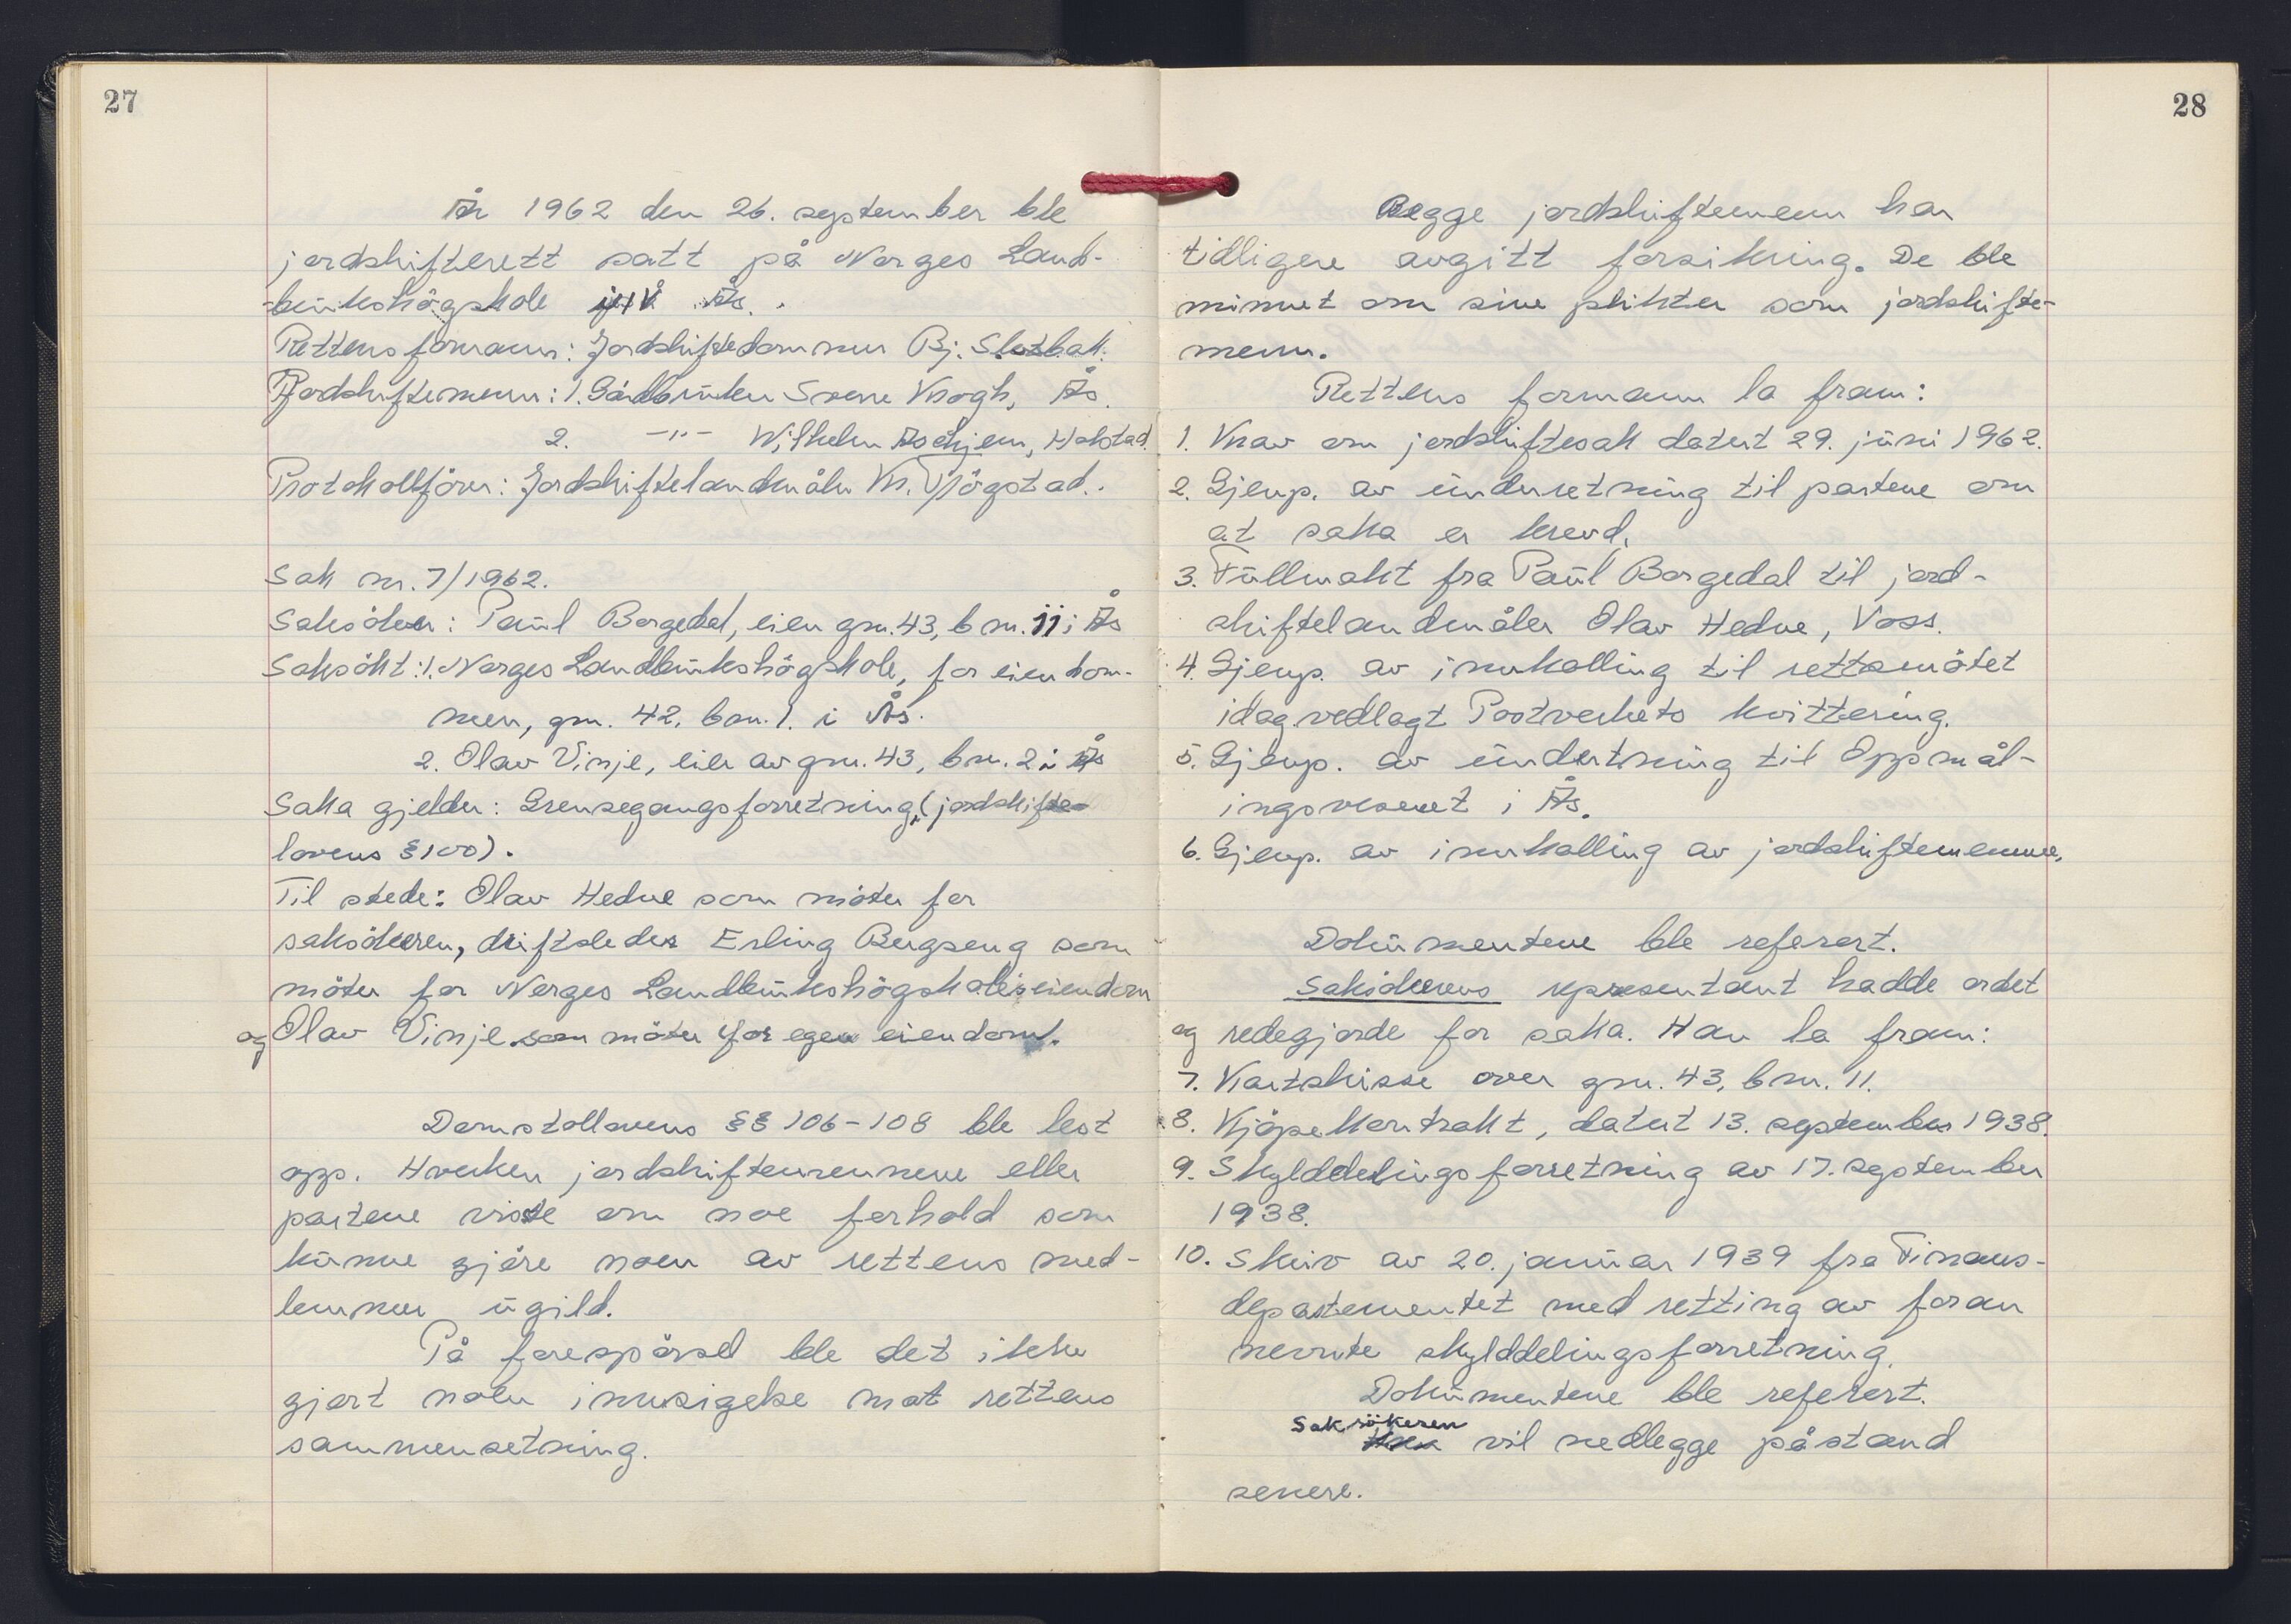 27
År 1962 den 26. september ble
jordskifterett satt på Norges Land-
brukshögskole i Ås.
Rettens formann: Jordskiftedommer Bj. Slotbak.
Jordskiftemenn: 1. Gårdbruker Sverre Krogh, Ås.
2. -"- Wilhelm Askjem, Hobstad.
Protokollförer: Jordskiftelandmåler Kr. Trögstad.
Sak nr. 7/1962.
Saksöker: Paul Borgedal, eier gnr. 43, bnr. 11 i Ås
Saksökt: 1. Norges Landbrukshögskole, for eiendom-
men, gnr. 42, bnr. 1. i Ås.
2. Olav Vinje, eier av gnr. 43, bnr. 2 i Ås
Saka gjelder: Grensegangsforretning, (jordskifte-
lovens § 100).
Til stede: Olav Hedne som möter for
saksökeren, driftsleder Erling Bergseng som
möter for Norges Landbrukshögskoles eiendom
og Olav Vinje som möter for egen eiendom.
Domstollovens §§ 106-108 ble lest
opp. Hverken jordskiftemennene eller
partene visste om noe forhold som
kunne gjöre noen av rettens med-
lemmer ugild.
På forespörsel ble det ikke
gjort noen innsigelse mot rettens
sammensetning.
28
Begge jordskiftemenn har
tidligere avgitt forsikring. De ble
minnet om sine plikter som jordskifte-
menn.
Rettens formann la fram:
1. Krav om jordskiftesak datert 29. juni 1962.
2. Gjenp. av underretning til partene om
at saka er krevd.
3. Fullmakt fra Paul Borgedal til jord-
skiftelandmåler Olav Hedne, Voss.
4. Gjenp. av innkalling til rettsmötet
idag vedlagt Postverkets kvittering.
5. Gjenp. av undertning til Oppmål-
ingsvesenet i Ås.
6. Gjenp. av innkalling av jordskiftemennene.
Dokumentene ble referert.
Saksökerens representant hadde ordet
og redegjorde for saka. Han la fram:
7. Kartskisse over gnr. 43, bnr. 11.
8. Kjöpekontrakt, datert 13. september 1938.
9. Skylddelingsforretning av 17. september
1938.
10. Skriv av 20. januar 1939 fra Finans-
departementet med retting av foran
nevnte skylddelingsforretning.
Dokumentene ble referert.
Saksökeren
vil nedlegge påstand
senere.